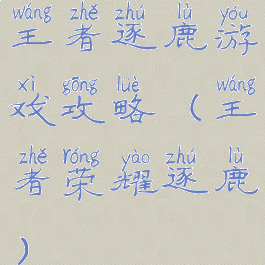 wáng zhě zhú lù yóu
王者逐鹿游
xì gōng lüè wáng
戏攻略(王
zhě róng yào zhú lù
者荣耀逐鹿
)